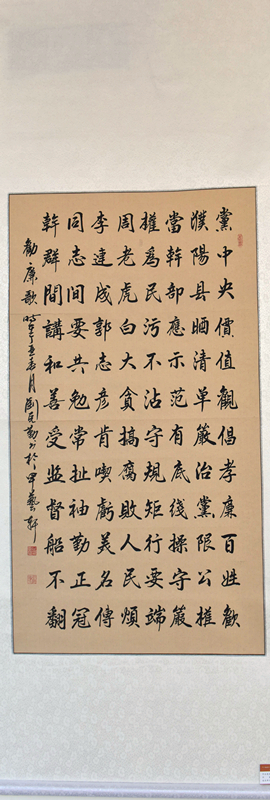 黨中央價值觀倡孝廉百姓歡
濮陽县晒清单嚴治黨限公權
當幹部應示范有底线操守嚴
權為民污不沾守規矩行要端
周老虎白大貪搞腐敗人民煩
李達成郭志彦肯喫虧美名傳
同志间要共勉常扯袖勤正冠
幹群間講和善受监督船不翻
勸廉歌 时在丁酉春月劉书於甲藝軒